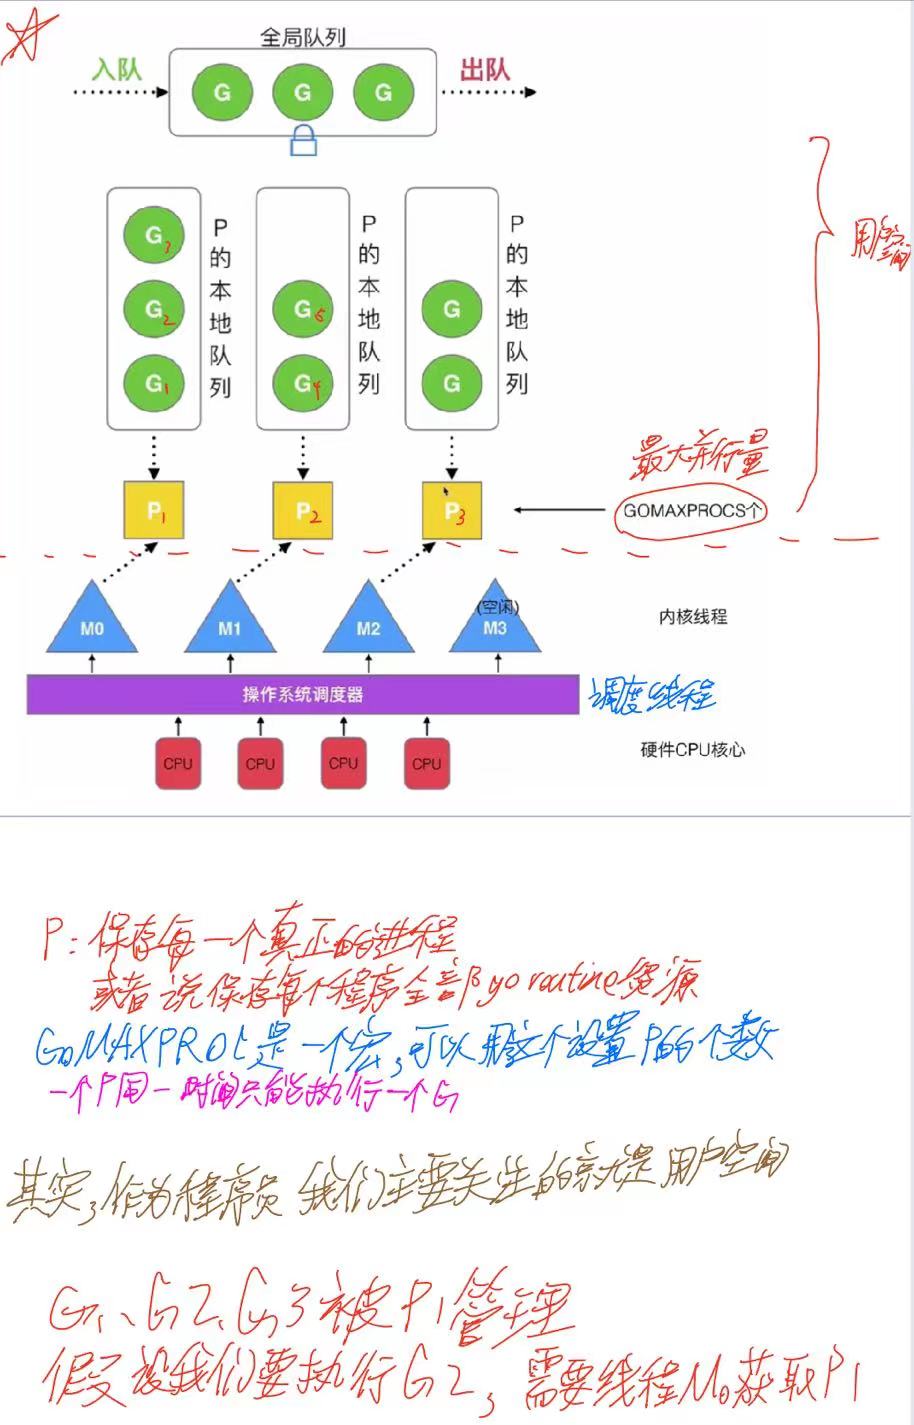 全局队列
入队
出队
G G G
P的本地队列
P的本地队列
P的本地队列
G3
G2 G5 G
G1 G4 G
用户空间
最大并行量
P1 P2 P3
GOMAXPROCS个
(空闲)
M0 M1 M2 M3
内核线程
操作系统调度器
调度线程
CPU CPU CPU CPU
硬件CPU核心
P:保存每一个真正的进程
或者说保存每个程序全部go routine资源
GoMAXPROC是一个宏,可以用这个设置P的个数
一个P同一时间只能执行一个G
其实,作为程序员 我们主要关注的就是用户空间
G1、G2、G3被P1管理
假设我们要执行G2,需要线程M0获取P1